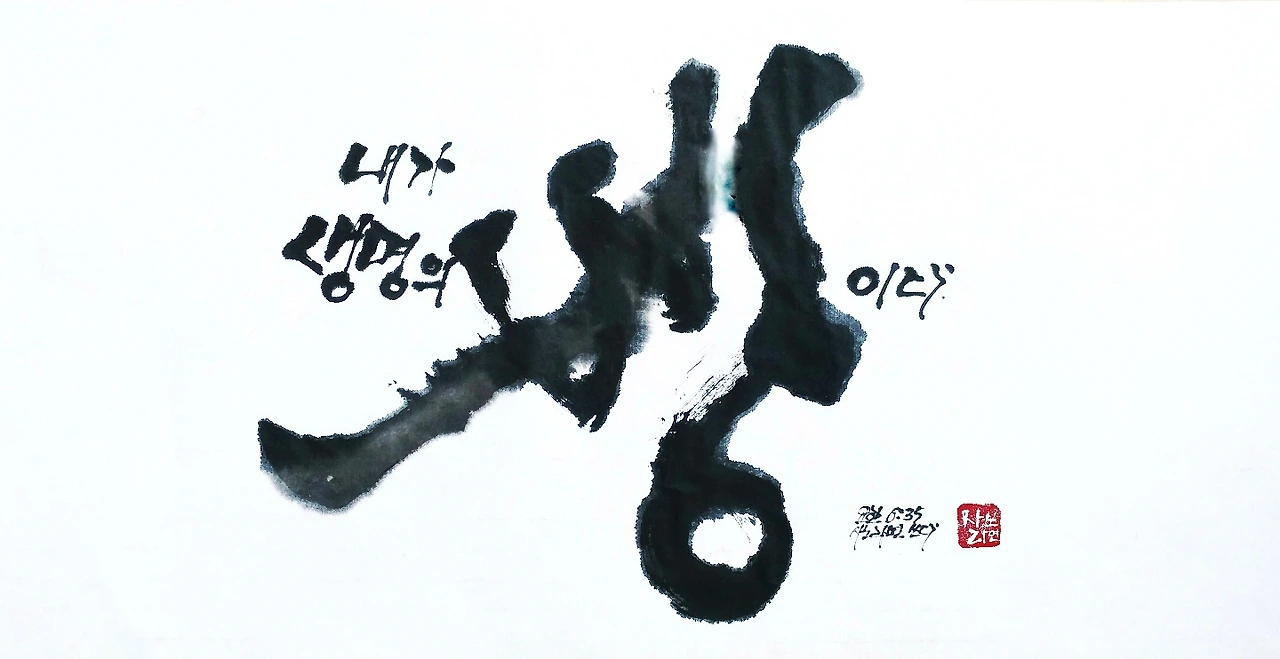 내가
생명의
빵
이다
요한 6:35